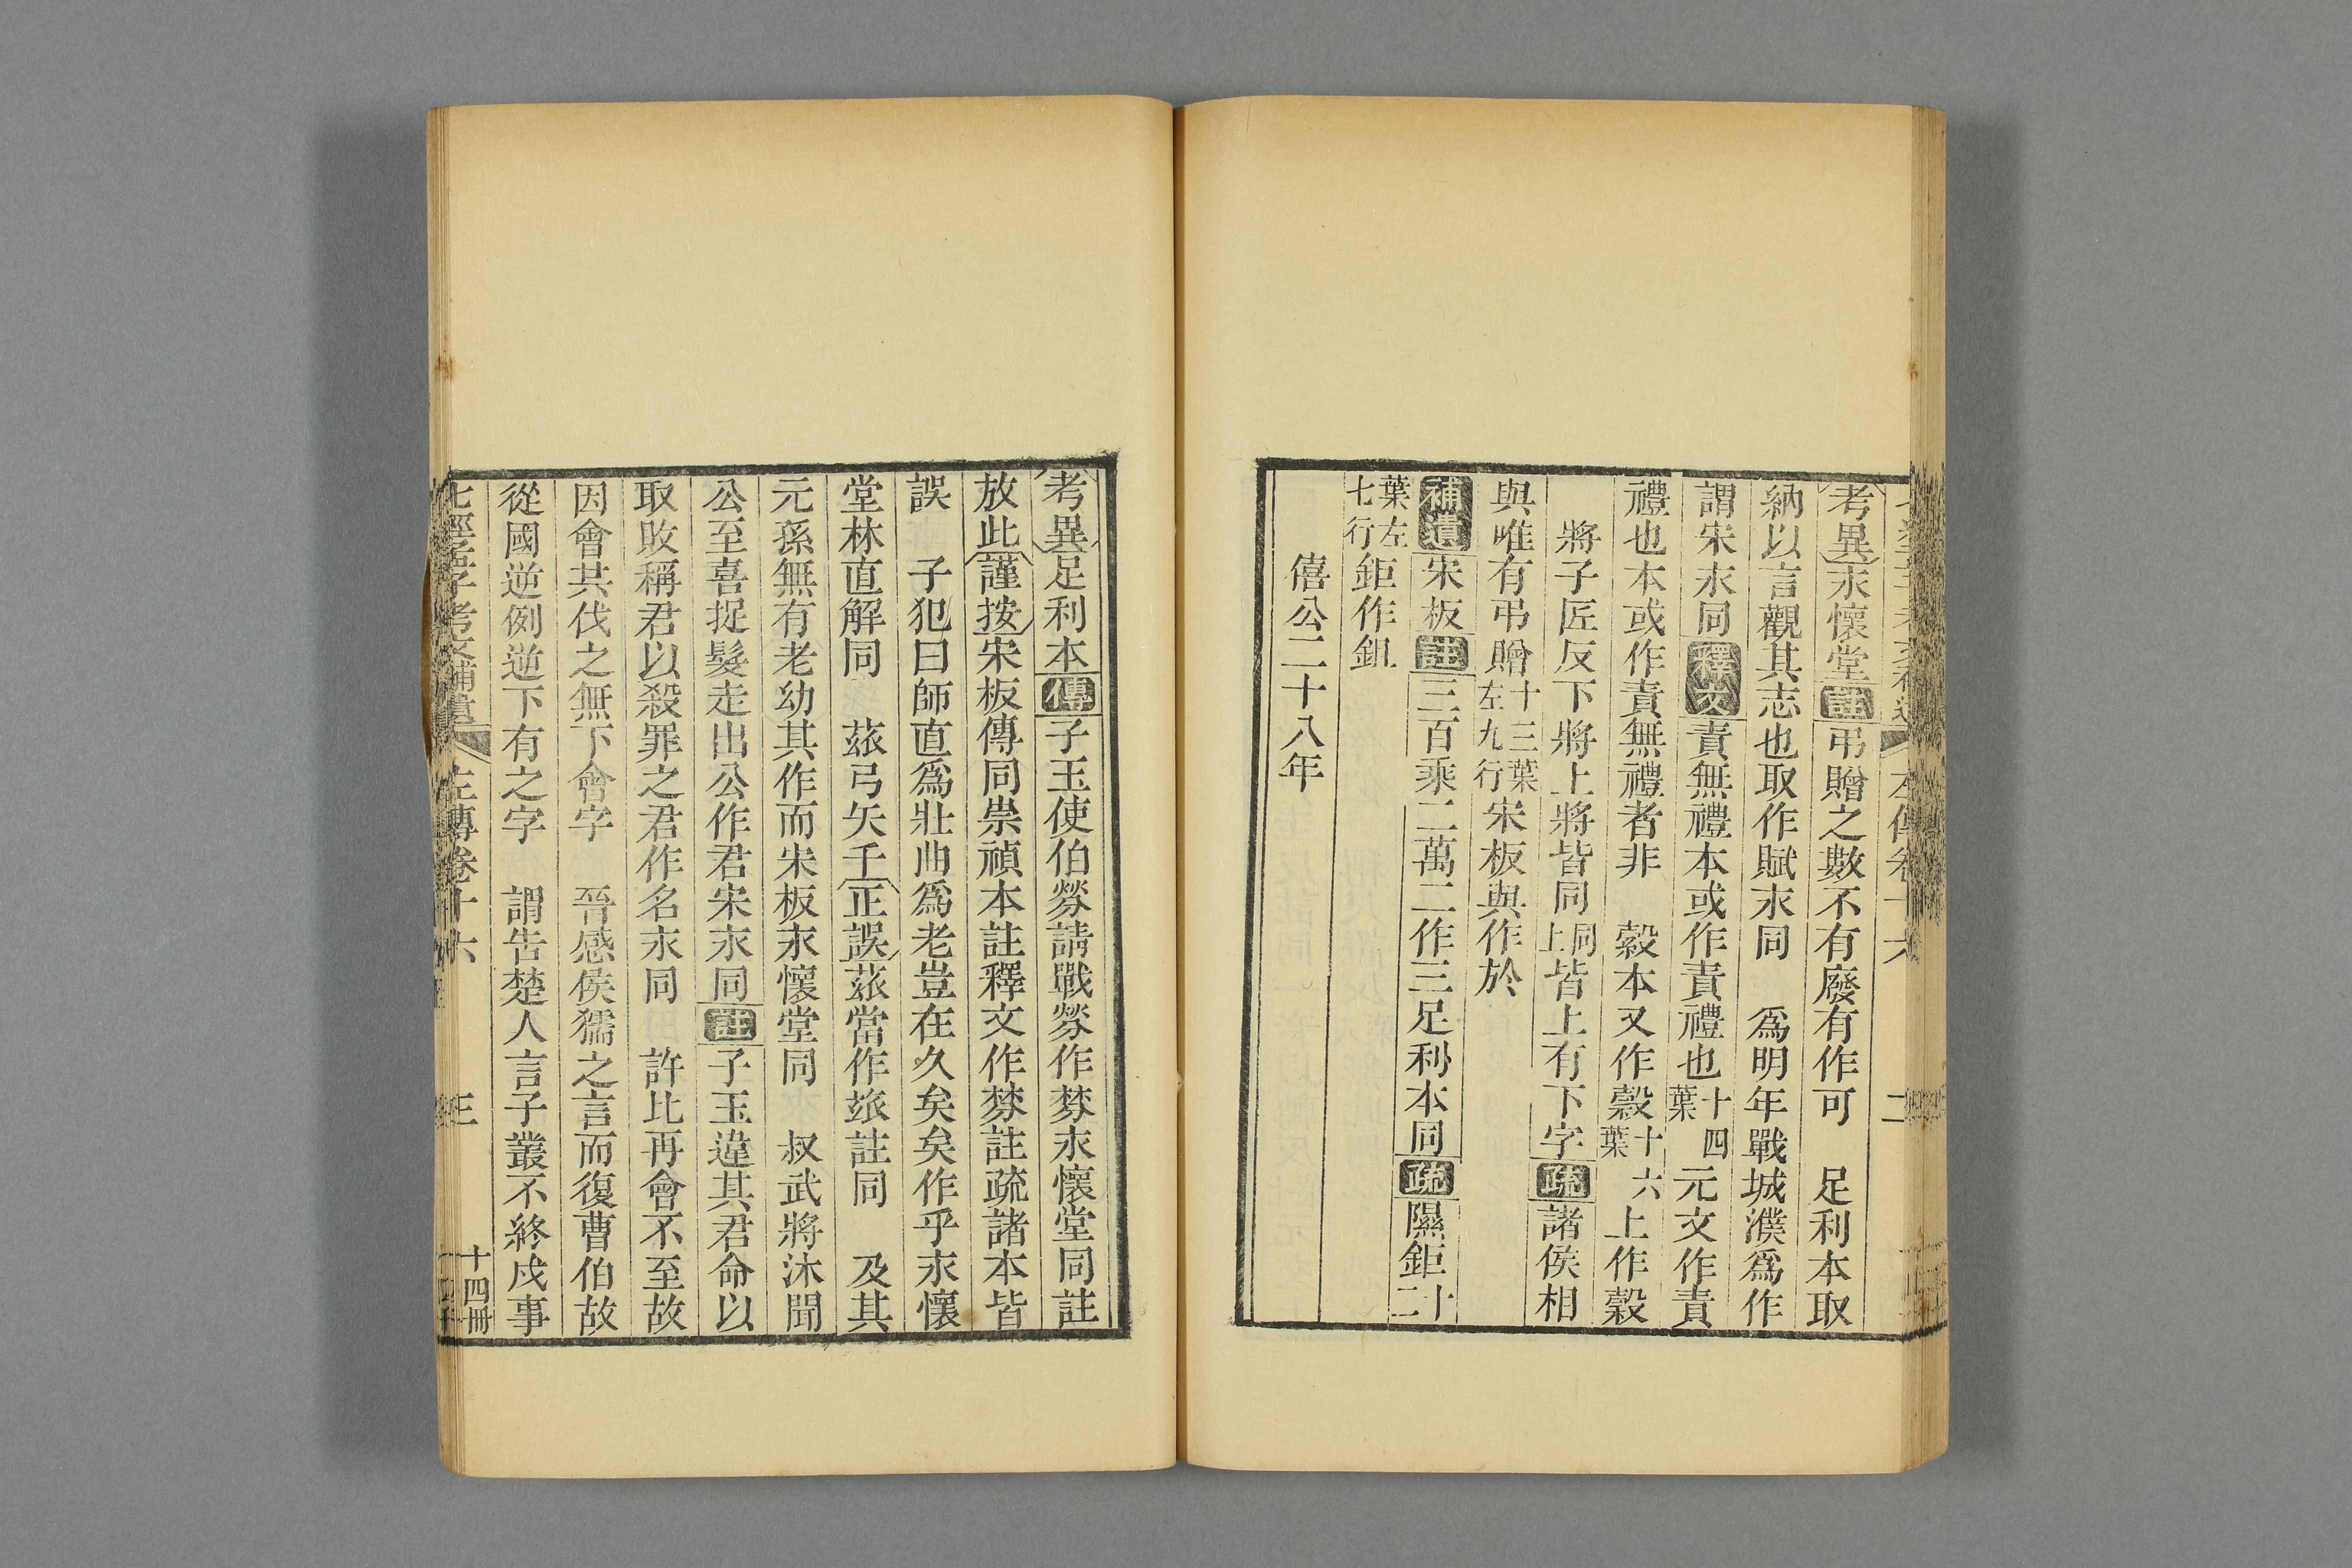 左傳卷十六 二
考異永懷堂註弔贈之數不有廢有作可 足利本取
納以言觀其志也取作賦永同 爲明年戰城濮爲作
謂宋永同釋文責無禮本或作責禮也十四葉元文作責
禮也本或作責無禮者非 縠本又作穀十六葉上作穀
將子匠反下將上將皆同上同皆上有下字疏諸侯相
與唯有弔贈十三葉左九行宋板與作於
補遺宋板註三百乘二萬二作三足利本同疏隰鉏二十
葉左七行鉅作鉏
僖公二十八年
考異足利本傳子玉使伯棼請戰棼作棼永懷堂同註
放此謹按宋板傳同崇禎本註釋文作棼註疏諸本皆
誤 子犯曰師直爲壯曲爲老豈在久矣矣作乎永懷
堂林直解同 玈弓矢千正誤玈當作玈註同 及其
元孫無有老幼其作而宋板永懷堂同 叔武將沐聞
公至喜捉髮走出公作君宋永同註子玉違其君命以
取敗稱君以殺罪之君作名永同 許比再會不至故
因會共伐之無下會字 晉感侯獳之言而復曹伯故
從國逆例逆下有之字 謂告楚人言子叢不終戍事
七經孟子考文補遺 左傳卷十六 三 十四冊